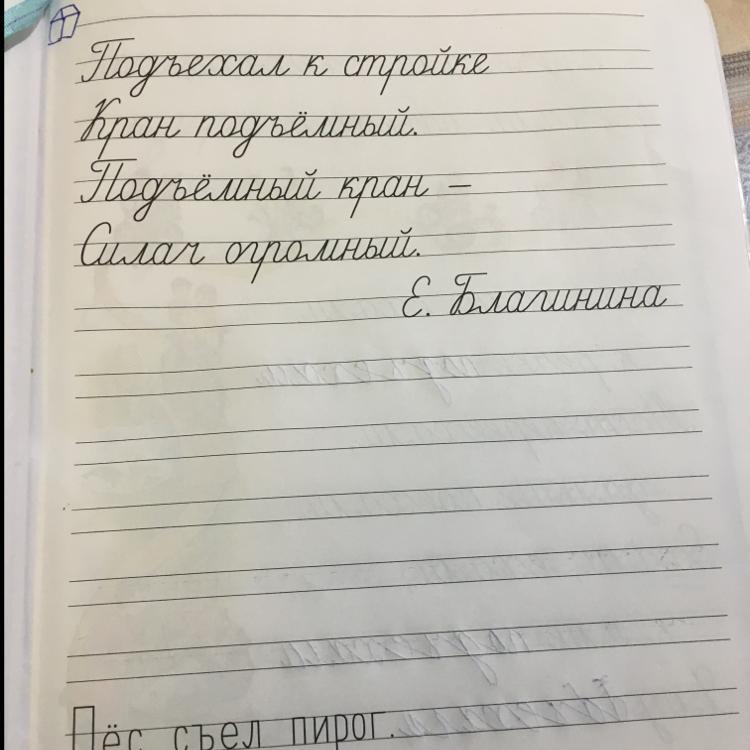 Подъехал к стройке
Кран подъёмный.
Подъёмный кран –
Силач огромный.
Е. Благинина
Пёс съел пирог.